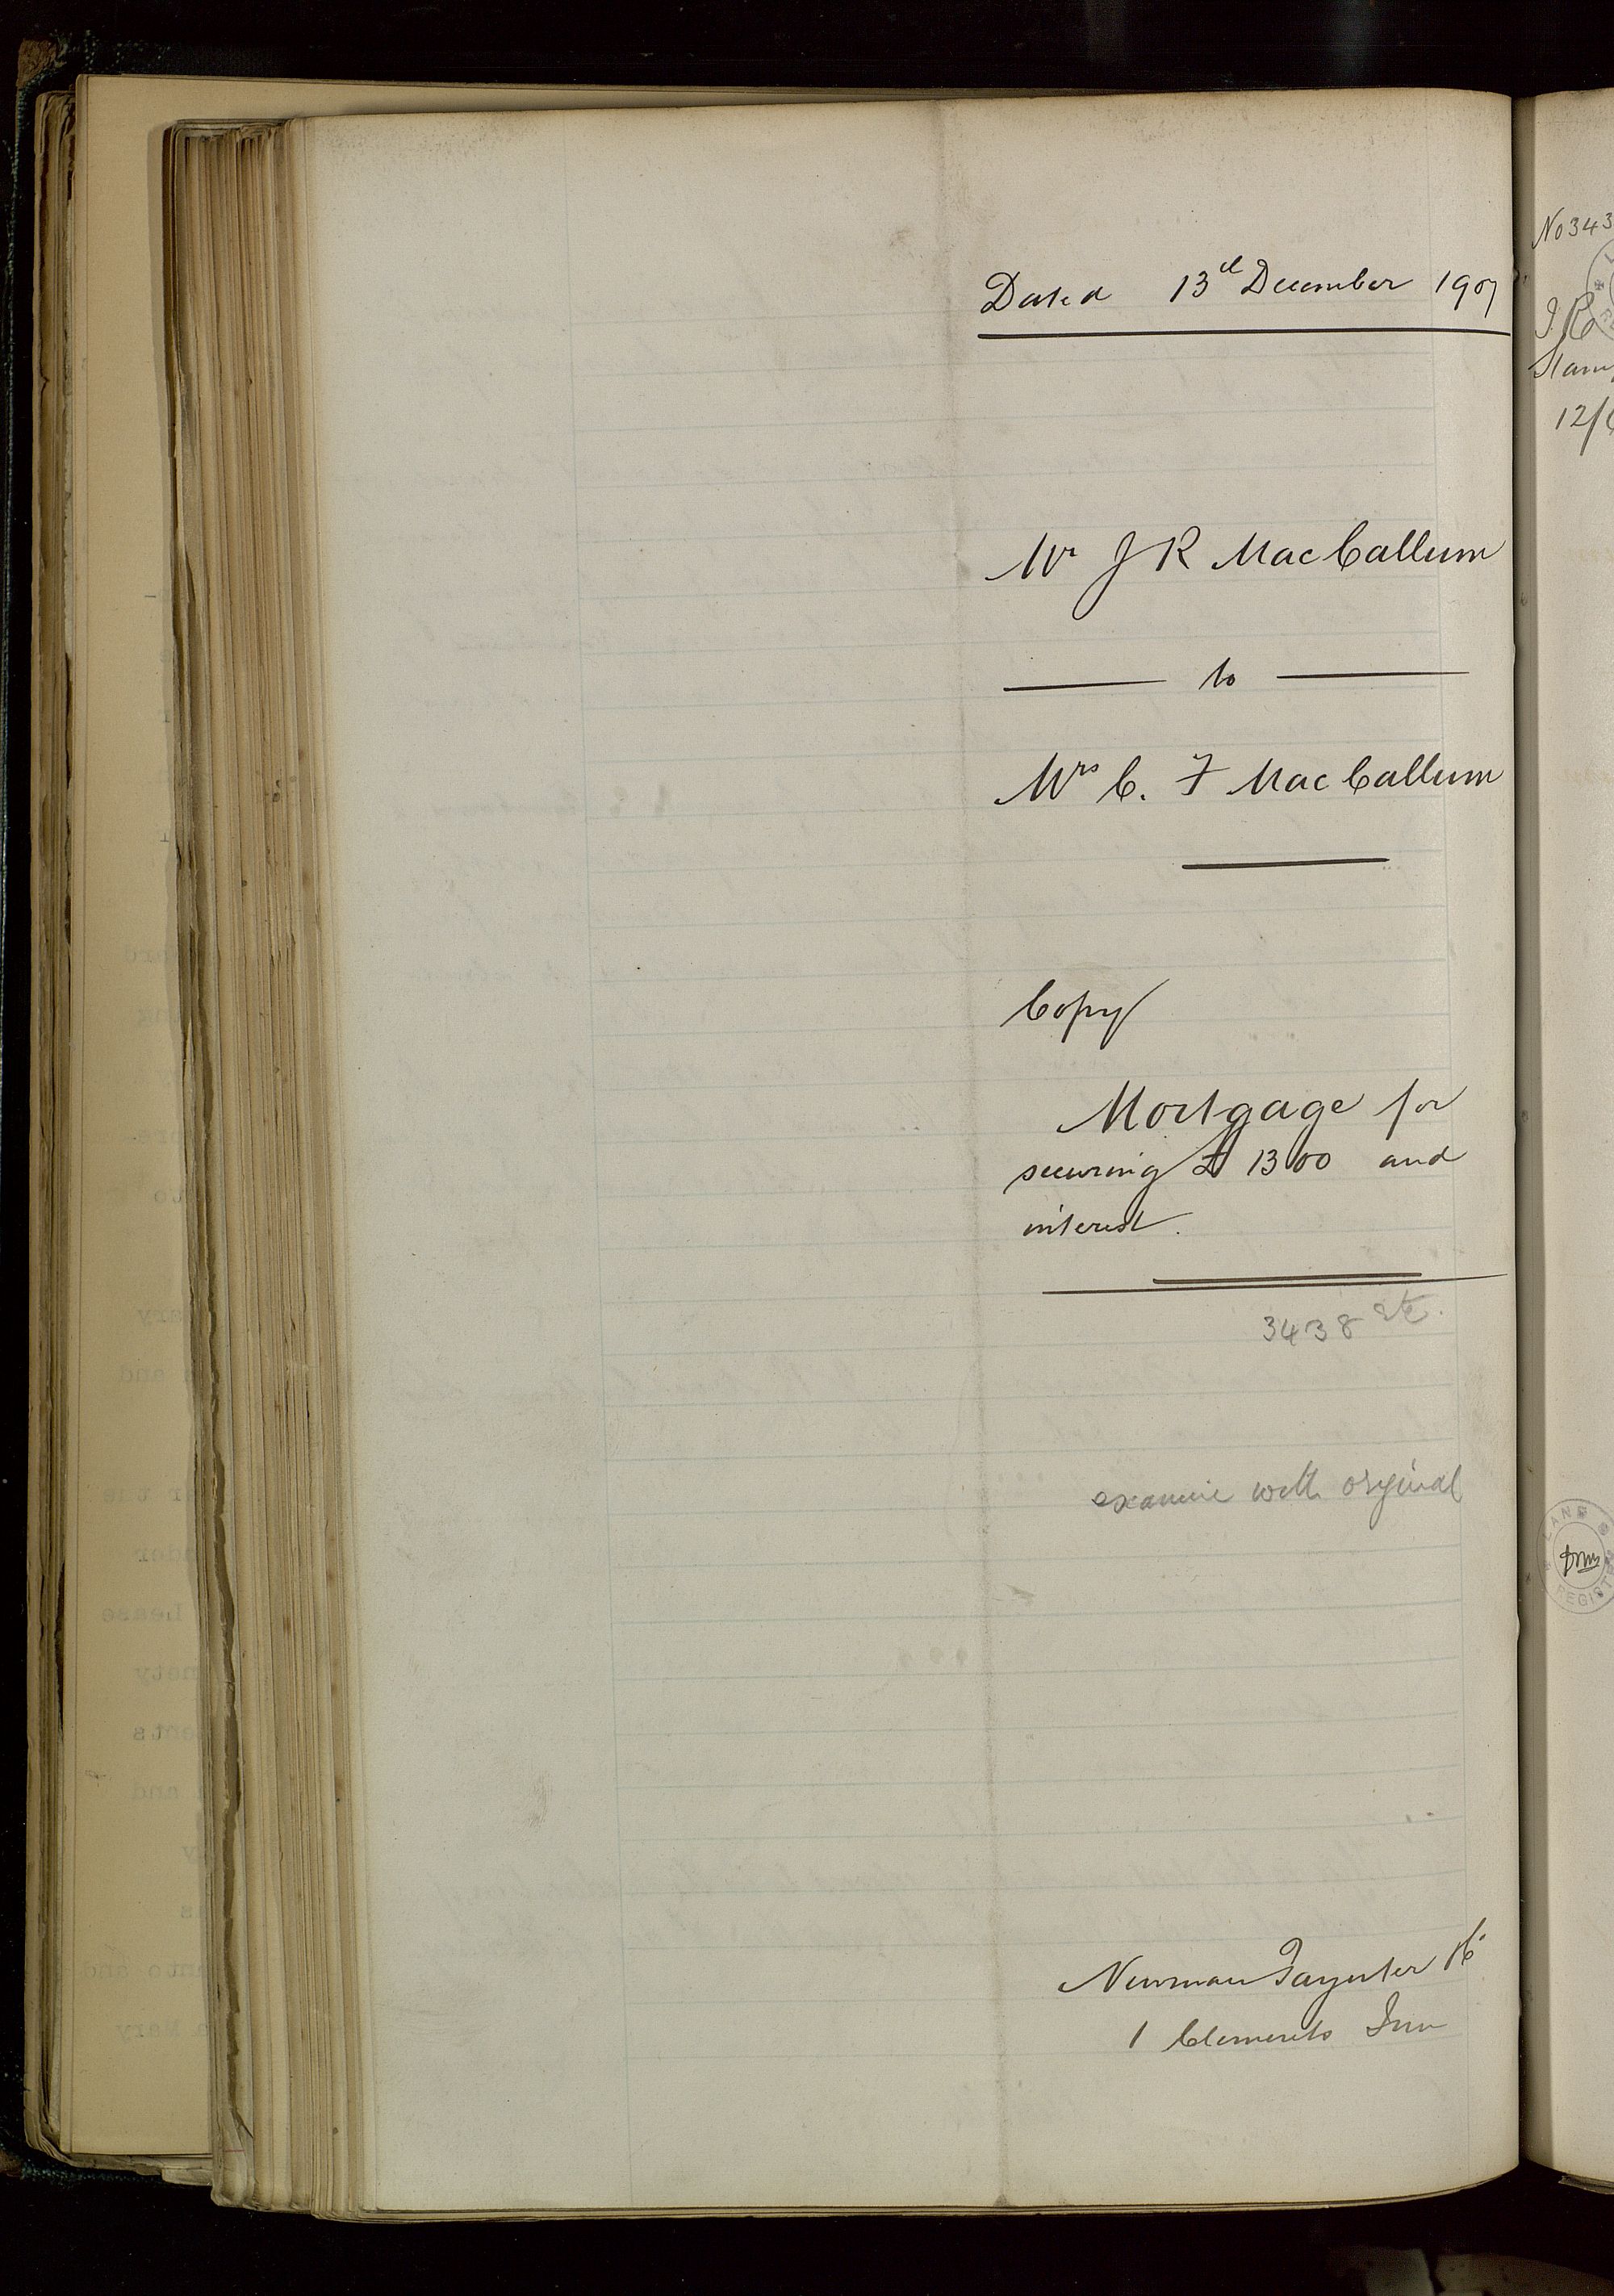 Dated 13th December 1907
Mr J R MacCallum
to
Mrs C. F MacCallum
Copy
Mortgage for
securing £1300 and
interest.
3438 etc.
examine with original
Newman Paynter &Co
1 Clements Inn
No 343
I.R.
Stam
12/6
LAND REGIST